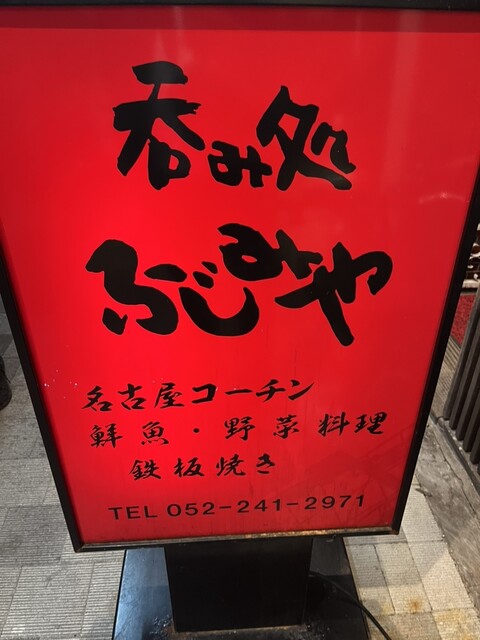 呑み処
ふじみや
名古屋コーチン
鮮魚・野菜料理
鉄板焼き
TEL 052-241-2971